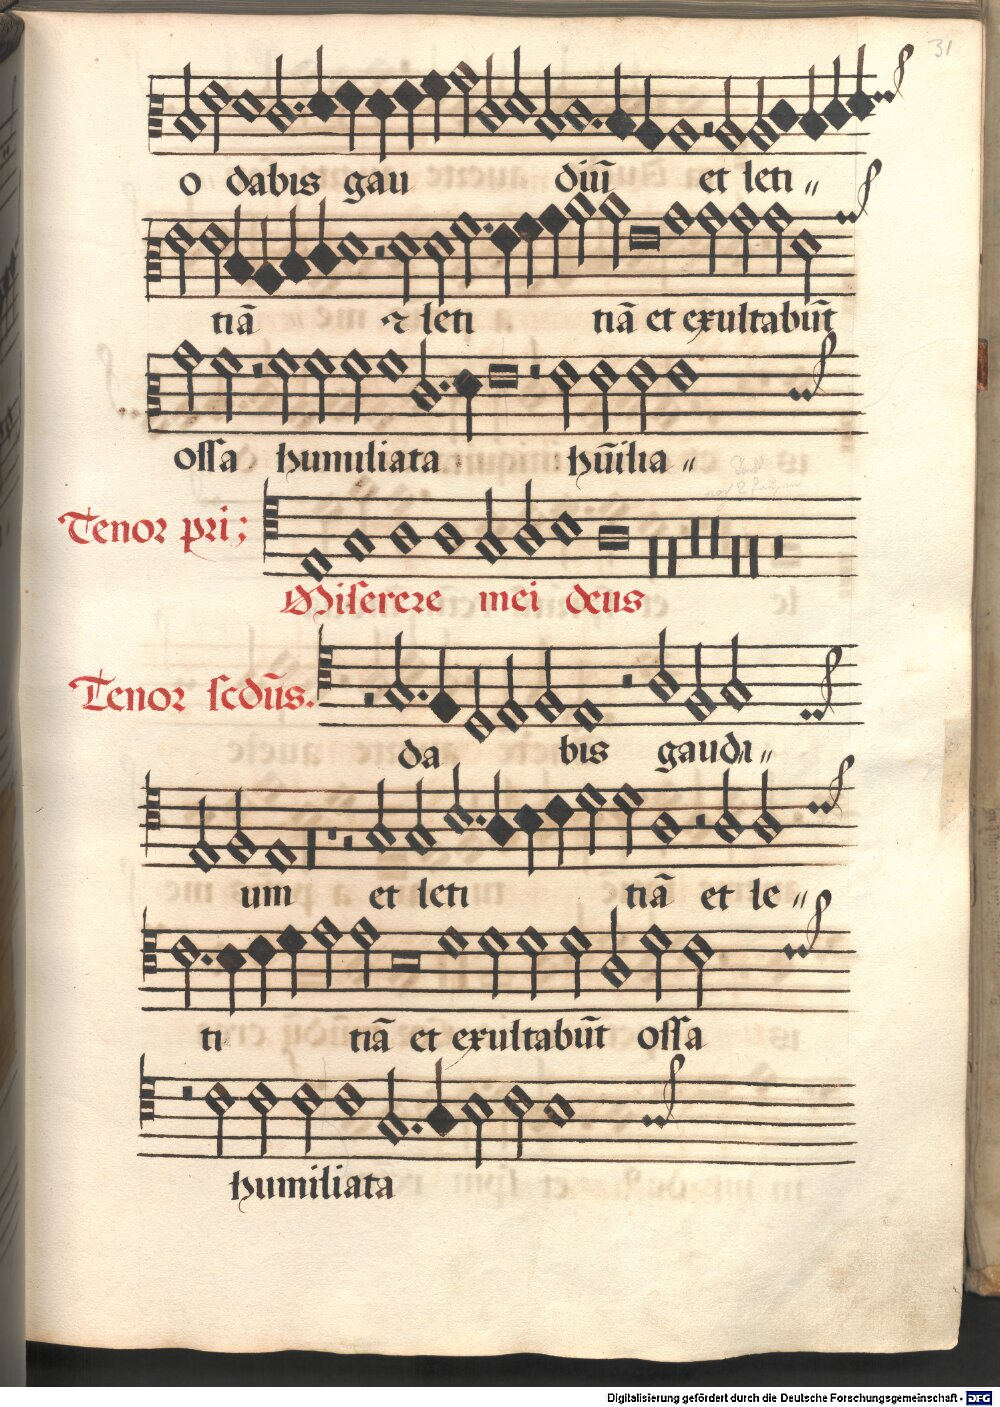 31
o dabis gau diū et leti〃
tiā ⁊ leti tiā et exultabūt
ossa humiliata hūilia〃
Tenor pri;
Miserere mei deus
Tenor scdūs.
da bis gaudi〃
um et leti tiā et le〃
ti tiā et exultabūt ossa
humiliata
Digitalisierung gefördert durch die Deutsche Forschungsgemeinschaft - DFG